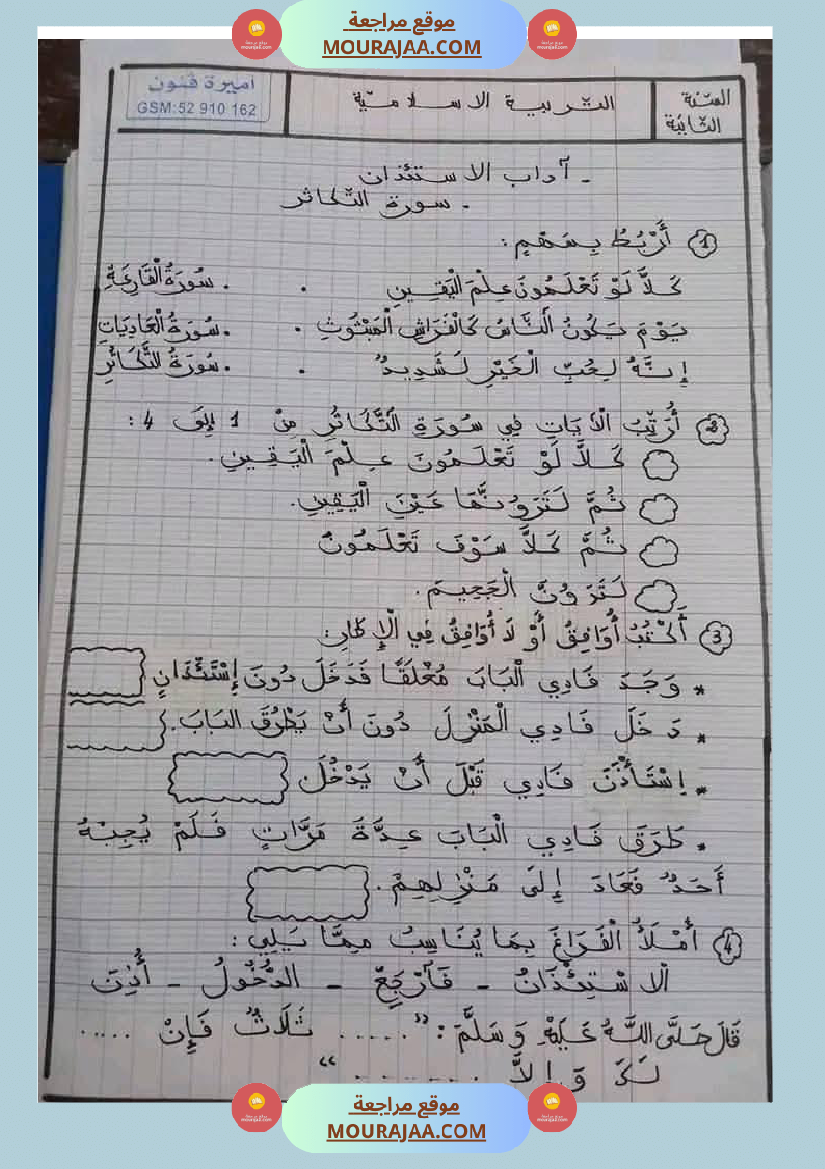 موقع مراجعة
MOURAJAA.COM
السّنة الثّانية
التّربية الاسلاميّة
أميرة فنون
GSM:52 910 162
- آداب الاستئذان
- سورة التّكاثر
1 أَرْبُطُ بِسَهْمٍ:
كَلاَّ لَوْ تَعْلَمُونَ عِلْمَ الْيَقِينِ . . سُورَةُ الْقَارِعَةِ
يَوْمَ يَكُونُ النَّاسُ كَالْفَرَاشِ الْمَبْثُوثِ . . سُورَةُ الْعَادِيَاتِ
إِنَّهُ لِحُبِّ الْخَيْرِ لَشَدِيدٌ . . سُورَةُ التَّكَاثُرِ
2 أُرَتِّبُ الْآيَاتِ فِي سُورَةِ التَّكَاثُرِ مِنْ 1 إِلَى 4:
كَلاَّ لَوْ تَعْلَمُونَ عِلْمَ الْيَقِينِ.
ثُمَّ لَتَرَوُنَّهَا عَيْنَ الْيَقِينِ.
ثُمَّ كَلاَّ سَوْفَ تَعْلَمُونَ
لَتَرَوُنَّ الْجَحِيمَ.
3 أَكْتُبُ أُوَافِقُ أَوْ لَا أُوَافِقُ فِي الْإِطَارِ:
* وَجَدَ فَادِي الْبَابَ مُغْلَقًا فَدَخَلَ دُونَ إِسْتِئْذَانٍ
* دَخَلَ فَادِي الْمَنْزِلَ دُونَ أَنْ يَطْرُقَ البَابَ.
* إِسْتَأْذَنَ فَادِي قَبْلَ أَنْ يَدْخُلَ
* طَرَقَ فَادِي الْبَابَ عِدَّةَ مَرَّاتٍ فَلَمْ يُجِبْهُ
أَحَدٌ فَعَادَ إِلَى مَنْزِلِهِمْ.
4 أَمْلَأُ الْفَرَاغَ بِمَا يُنَاسِبُ مِمَّا يَلِي:
الاسْتِئْذَانُ - فَارْجِعْ - الدُّخُولُ - أُذِنَ
قَالَ صَلَّى اللَّهُ عَلَيْهِ وَسَلَّمَ: "...... ثَلَاثٌ فَإِنْ .....
لَكَ وَإِلاَّ ........"
موقع مراجعة
MOURAJAA.COM